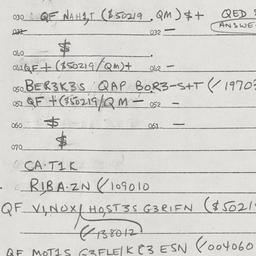 030 QF NAH1,T ($50219 . QM) $+ QED
032 032 — ANSWE
$
040
041 QF + ($50219/QM)+ 042 —
050 BER3K3S QAP BOR3-S+T (/1970
051 QF + ($50219/QM — 052 —
060 $ 061 —
$
070
CA.T1K
RIBA.ZN (/109010
QF V,NOX/ HO,ST3S G3RIFN ($5021
(/138012
QF MOT1S G3FLE/K C3 ESN (/004060